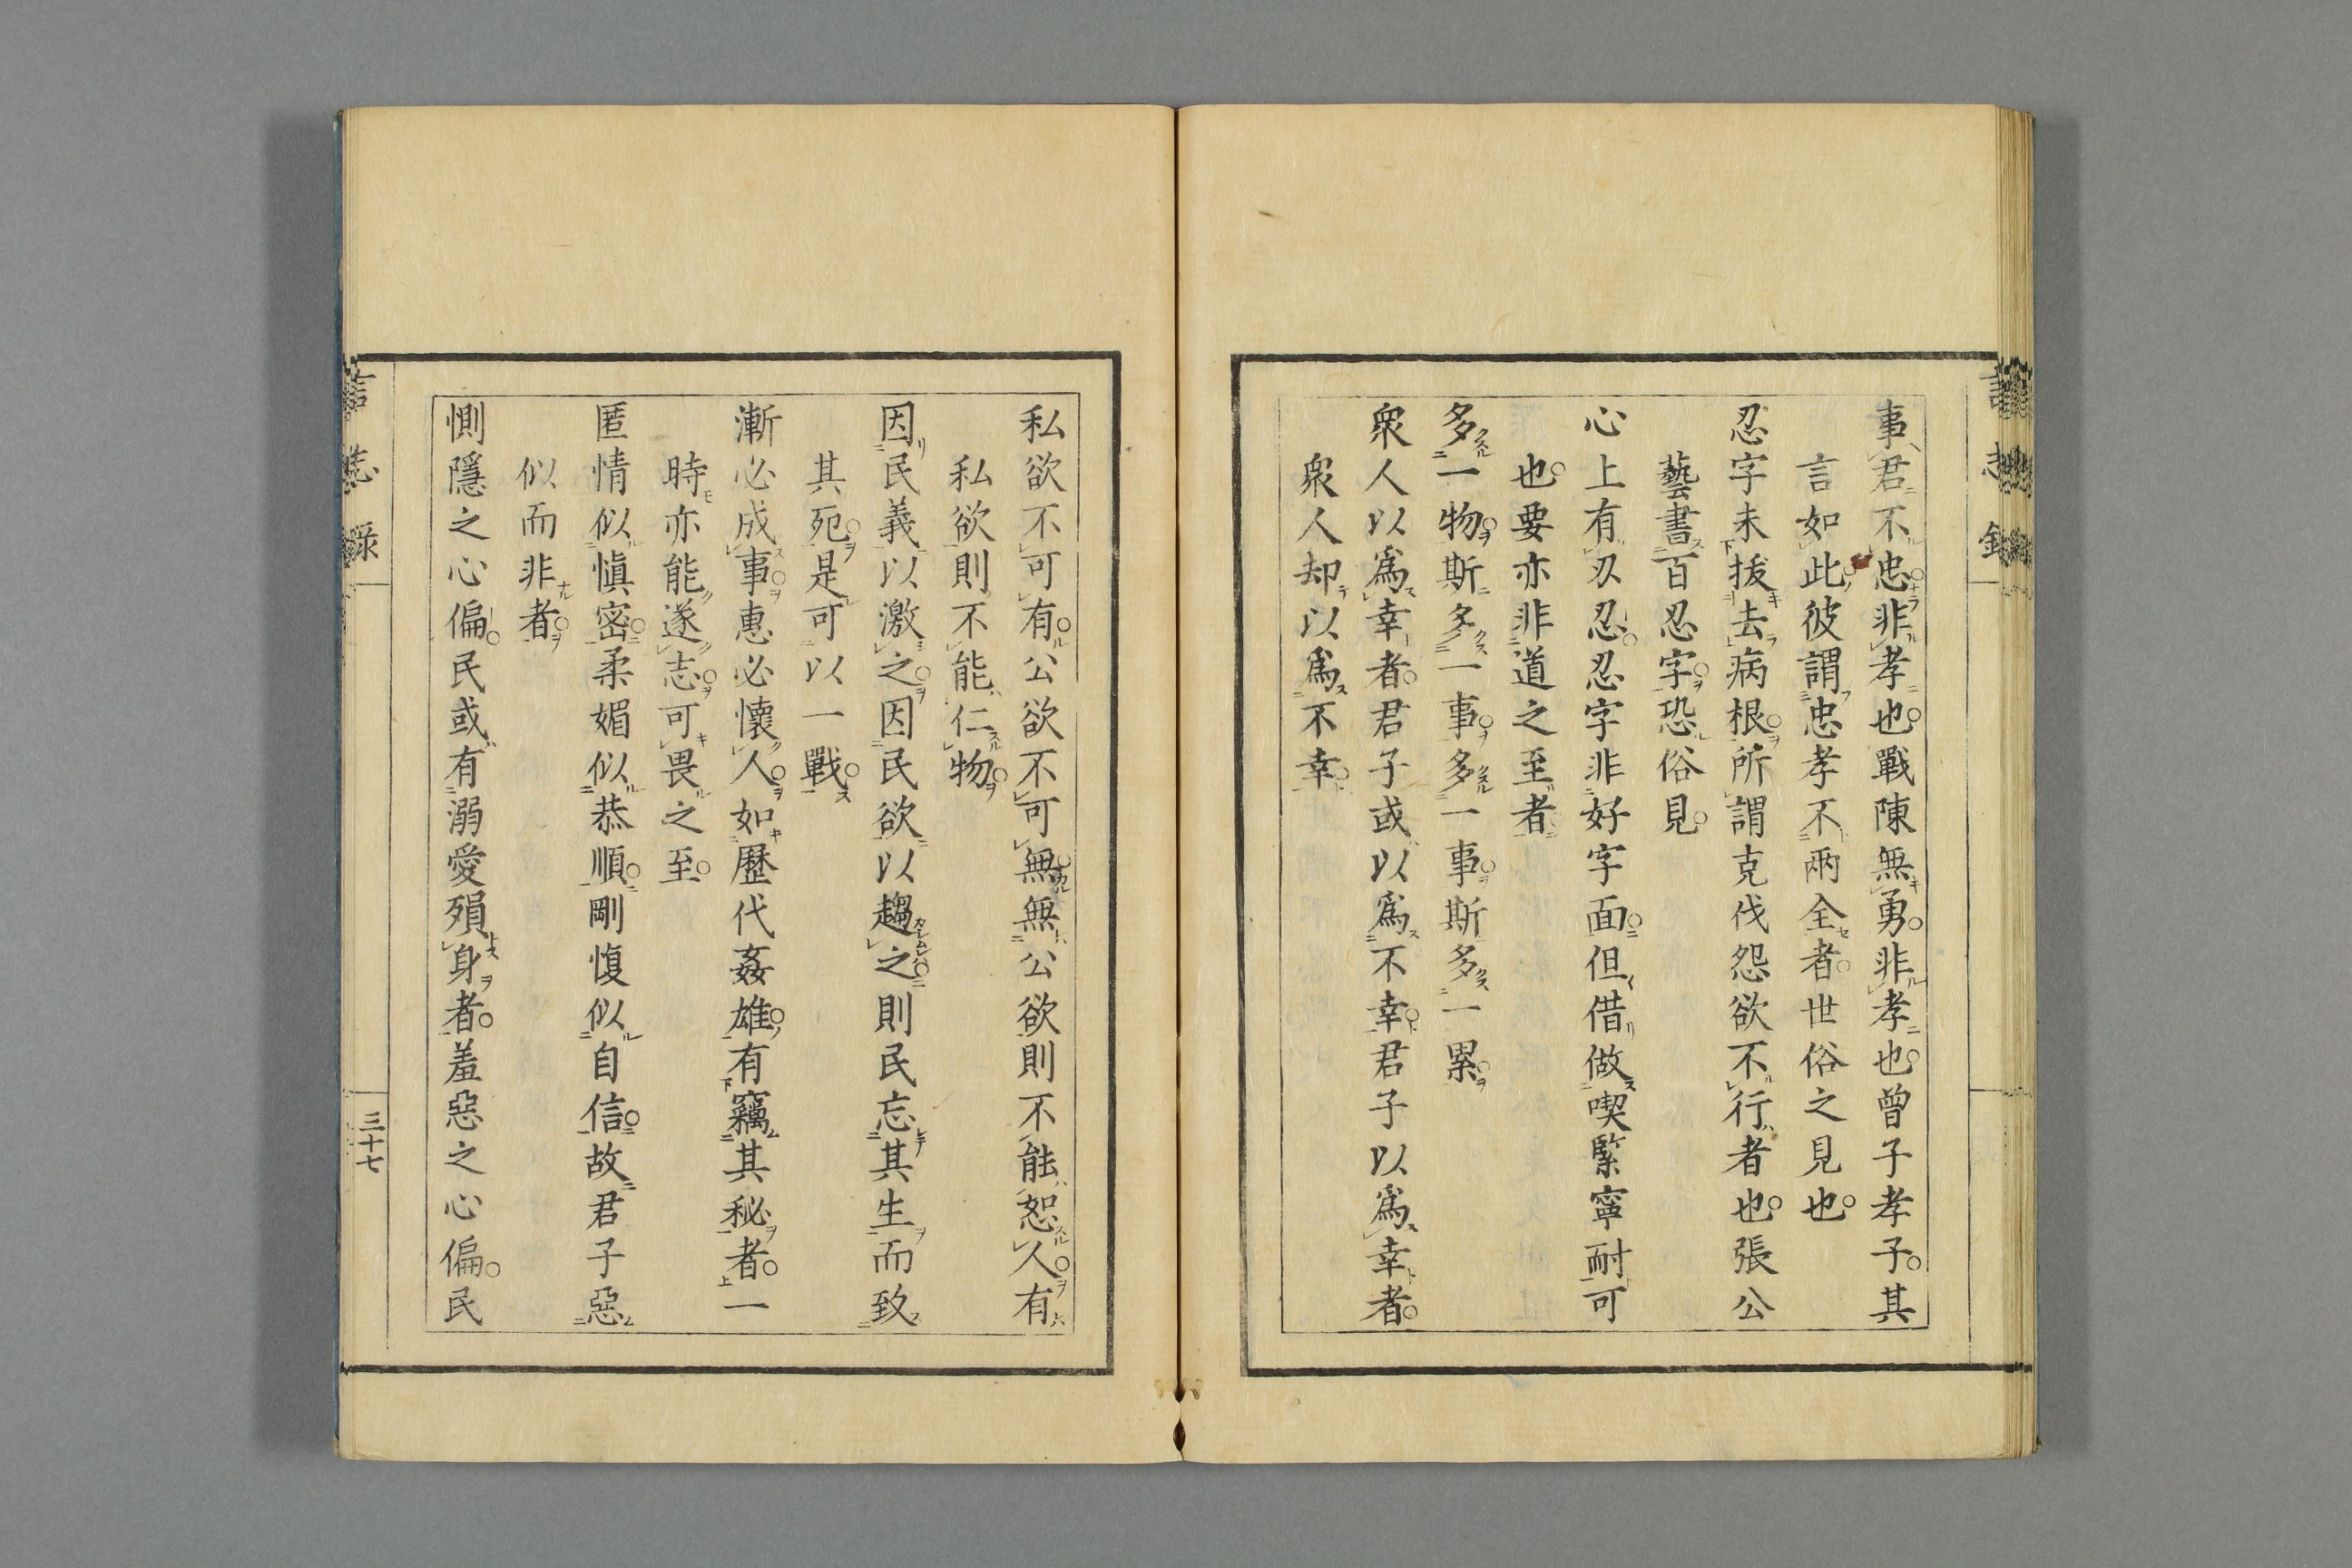 事君不忠非孝也戰陳無勇非孝也曾子孝子其
言如此彼謂忠孝不兩全者世俗之見也
忍字未拔去病根所謂克伐怨欲不行者也張公
藝書百忍字恐俗見
心上有刃忍忍字非好字面但借做喫緊寧耐可
也要亦非道之至者
多一物斯多一事多一事斯多一累
衆人以爲幸者君子或以爲不幸君子以爲幸者
衆人却以爲不幸
私欲不可有公欲不可無無公欲則不能恕人有
私欲則不能仁物
因民義以激之因民欲以趨之則民忘其生而致
其死是可以一戰
漸必成事惠必懷人如歷代姦雄有竊其秘者一
時亦能遂志可畏之至
匿情似愼密柔媚似恭順剛愎似自信故君子惡
似而非者
惻隱之心偏民或有溺愛殞身者羞惡之心偏民
言志錄
三十七